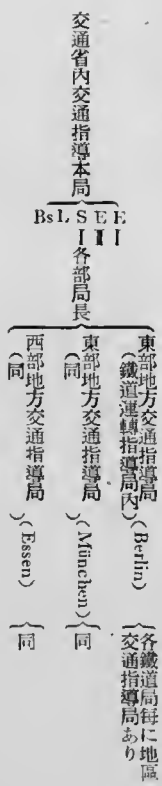 交通省内交通指導本局
E I
E II
S I
L
Bs
各部局長
東部地方交通指導局
(鐵道運轉指導局内)
(Berlin)
各鐵道局每に地區
交通指導局あり
東部地方交通指導局
(同)
(München)
同
西部地方交通指導局
(同)
(Essen)
同